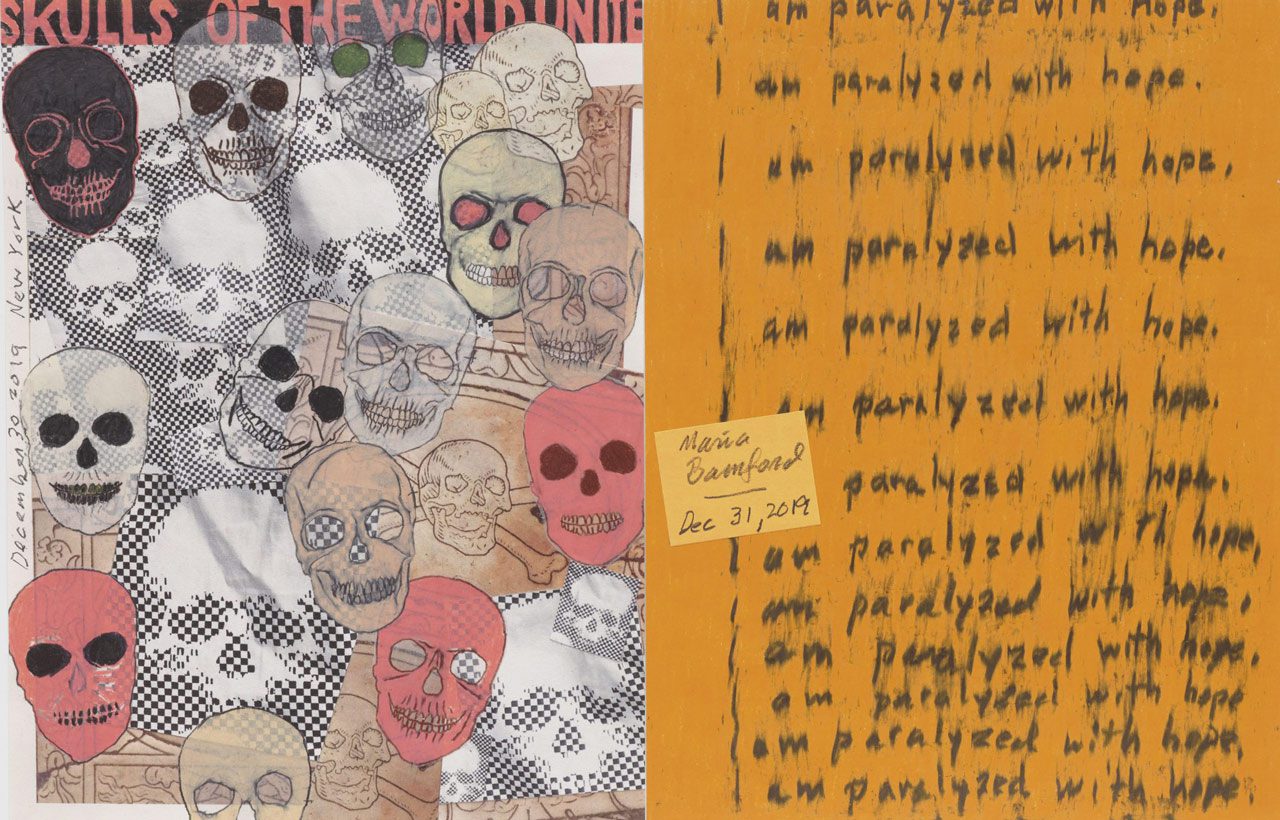 SKULLS OF THE WORLD UNITE
December 30 2019 New York
I am paralyzed with hope.
I am paralyzed with hope.
I am paralyzed with hope.
I am paralyzed with hope.
I am paralyzed with hope.
I am paralyzed with hope.
paralyzed with hope.
I am paralyzed with hope.
I am paralyzed with hope.
I am paralyzed with hope.
I am paralyzed with hope
I am paralyzed with hope.
I am paralyzed with hope.
Maria
Bamford
Dec 31, 2019